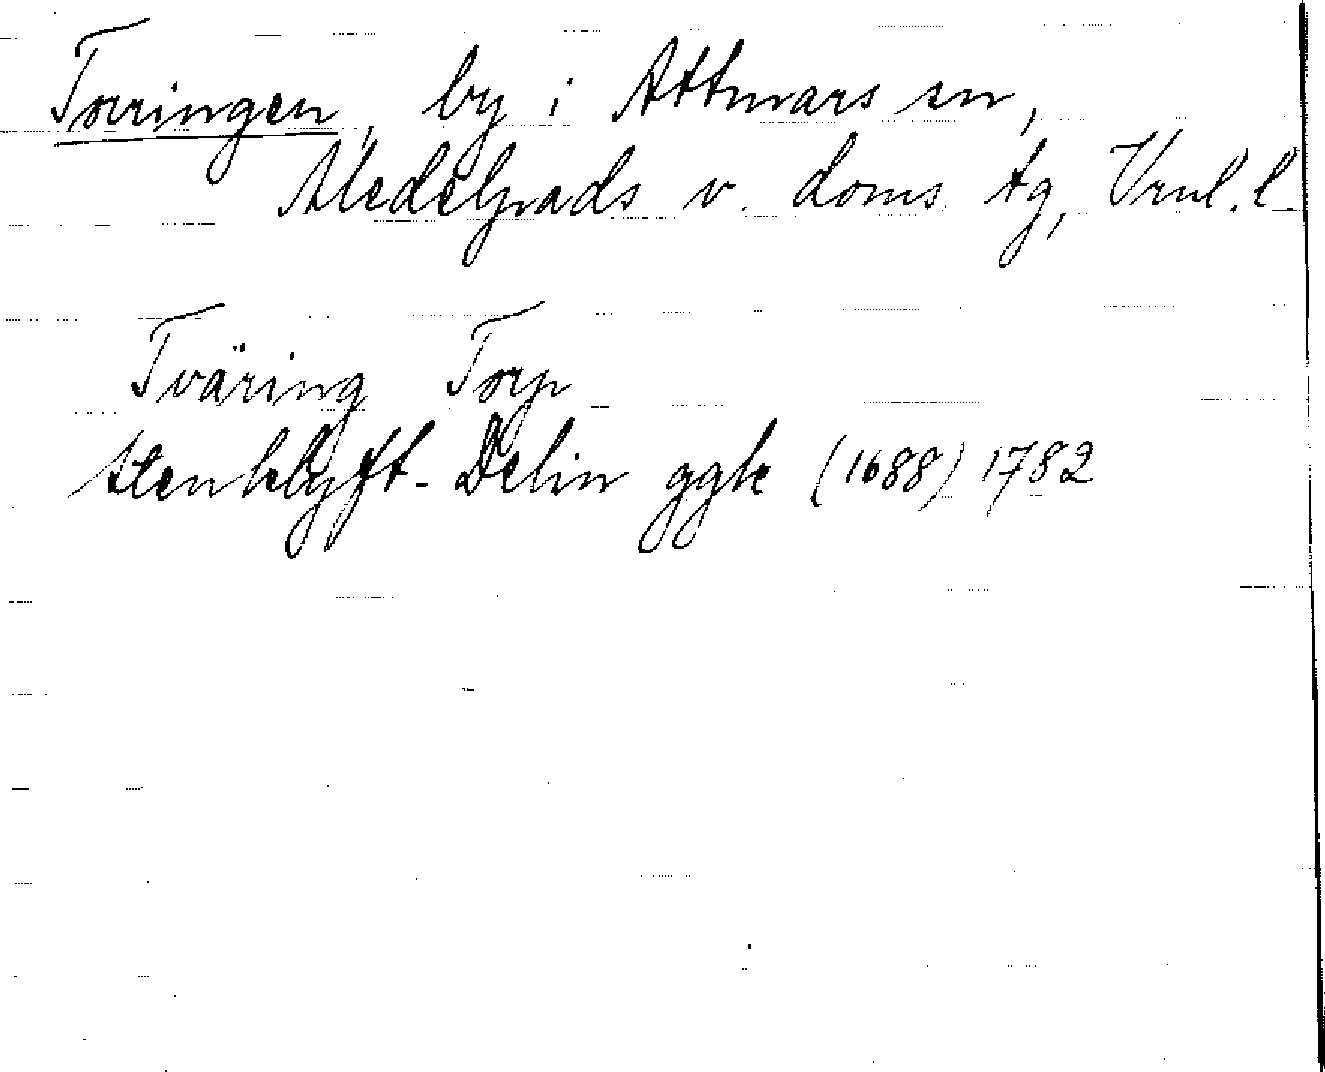 Torringen, by i Attmars sn,
Medelpads v. doms. tg, Vrnl. l.
Tväring Torp
Stenklyft-Delin ggk (1688) 1782